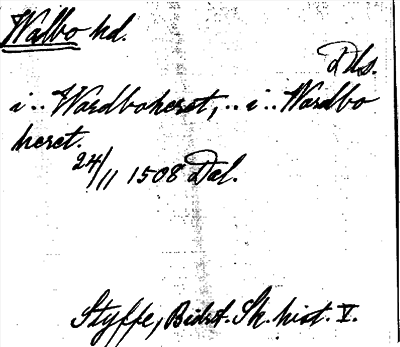 Walbo hd.
Dls.
i .. Wardboheret, .. i .. Wardbo
heret.
24/11 1508 Dal.
Styffe, Bidr t. Sk. hist. V.